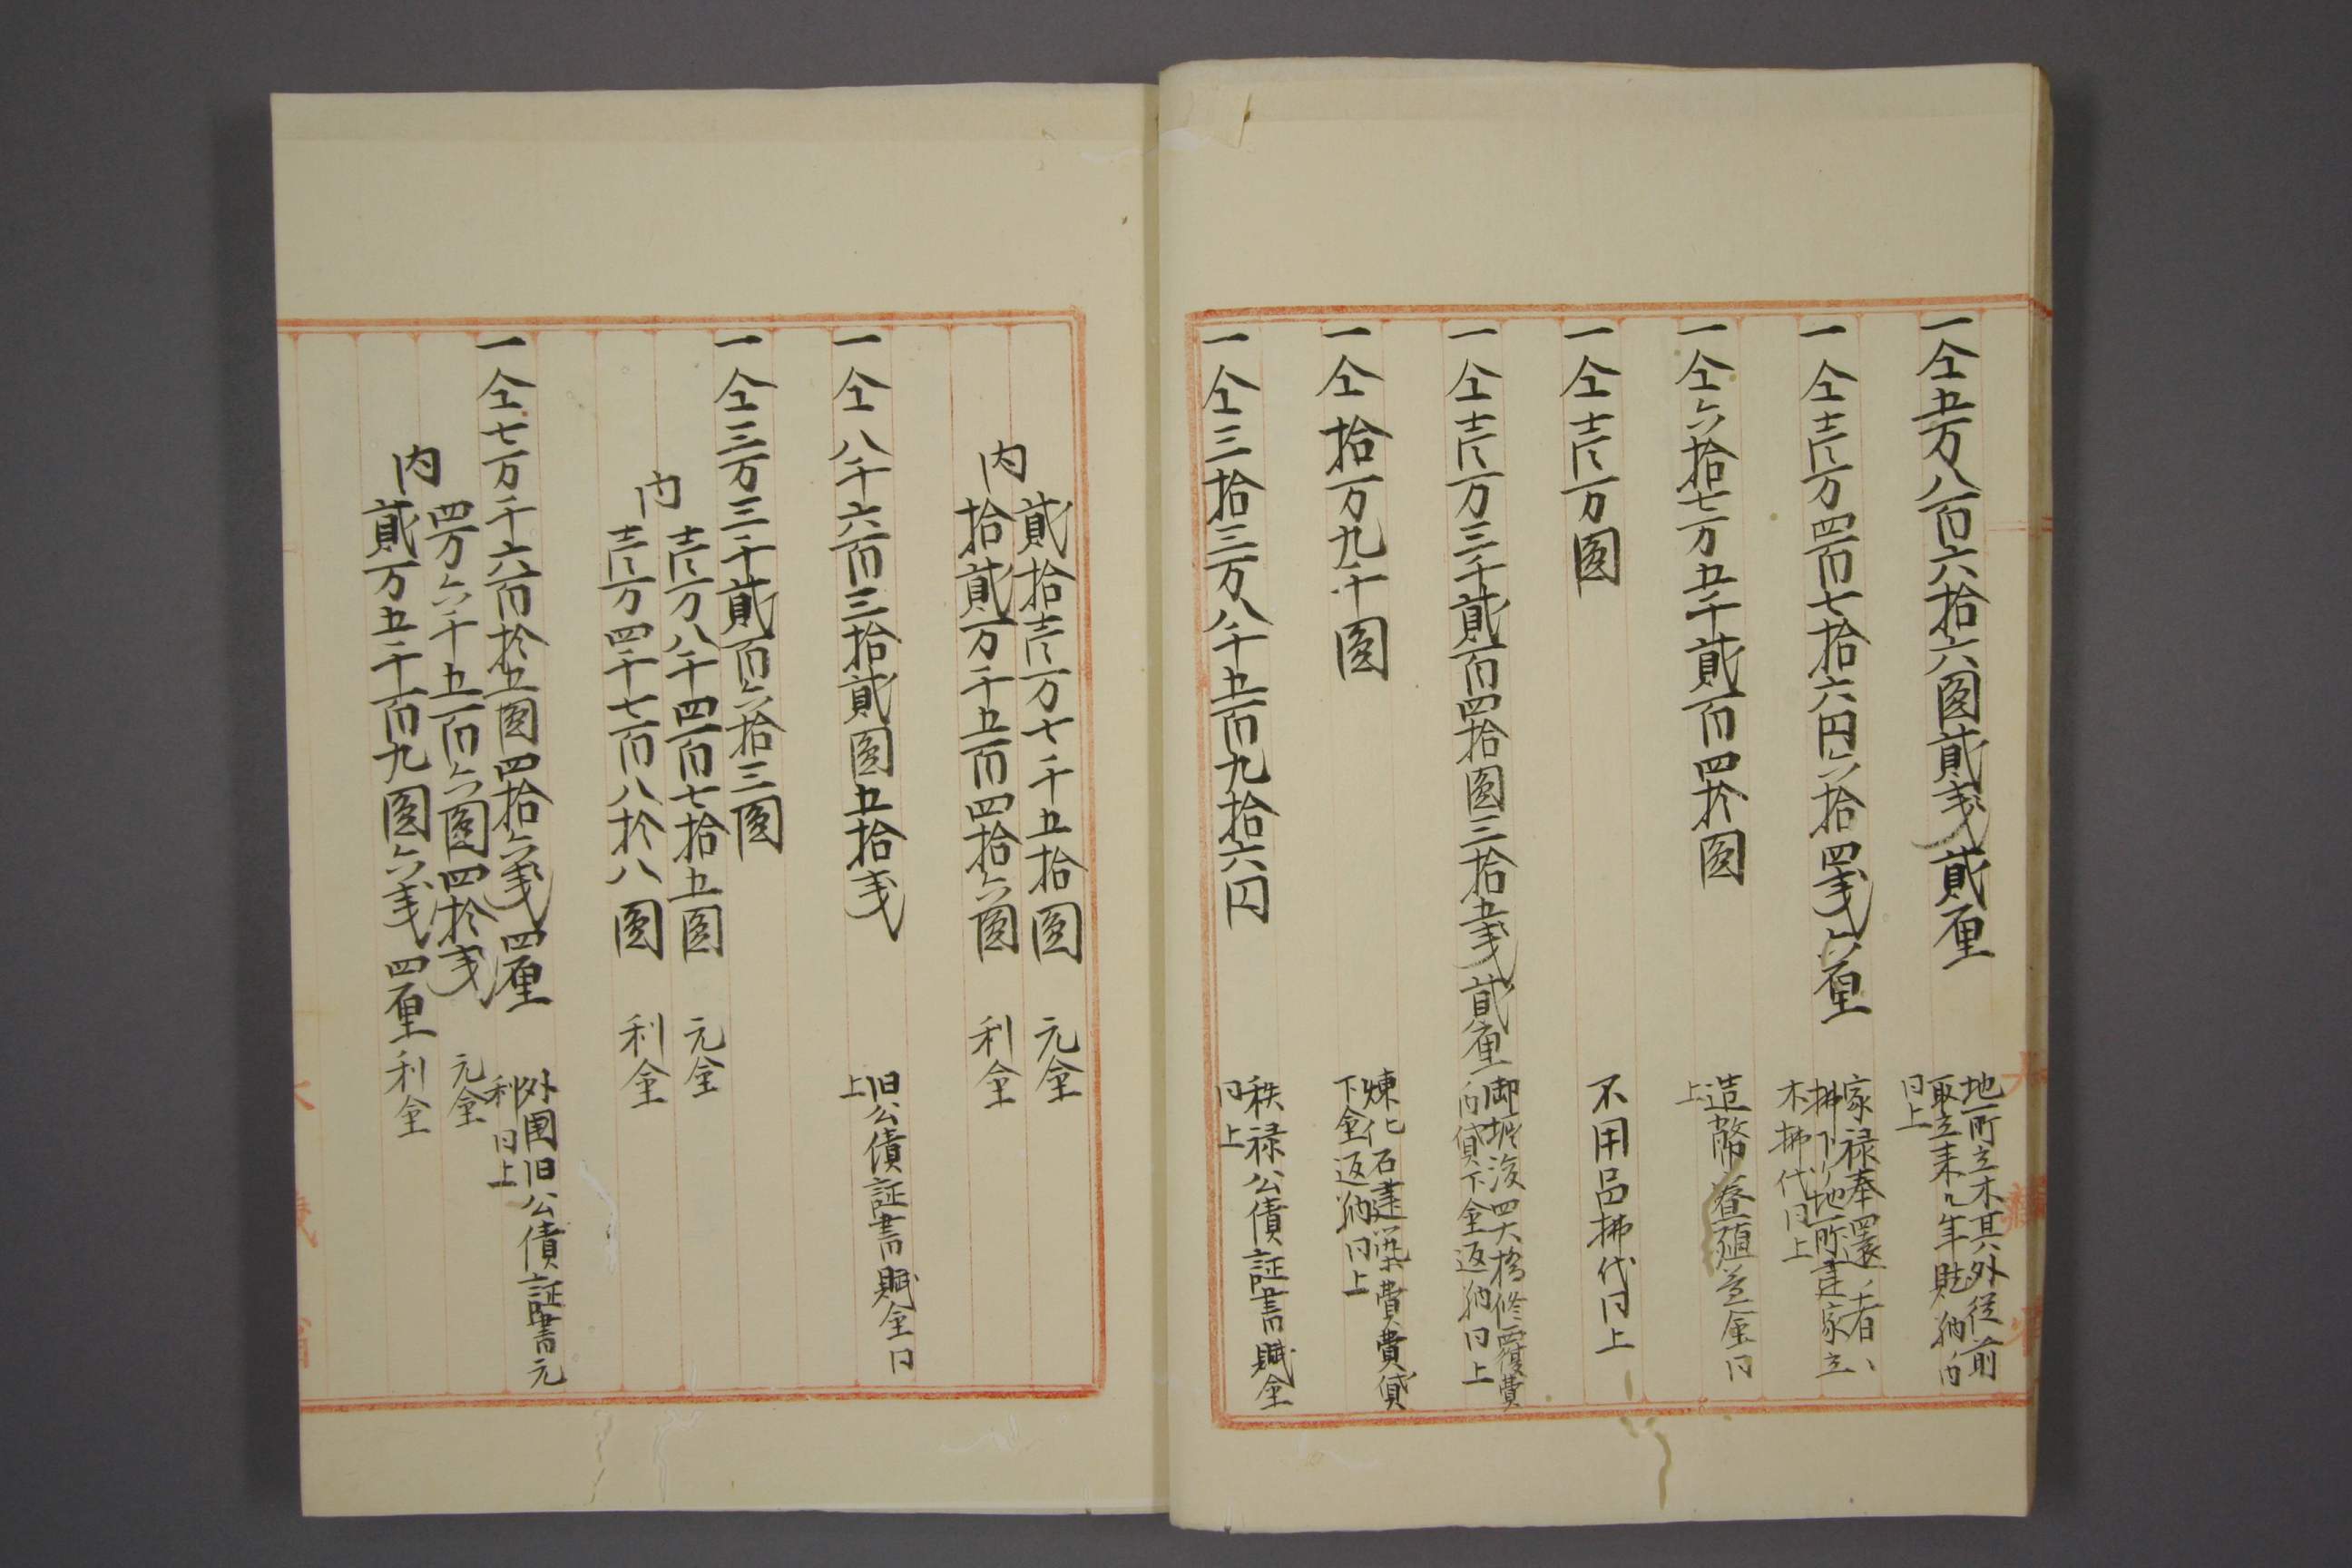 一仝五万八百六拾六圓貳戔貳厘
地所立木其外従前
取立来ル年賦納内
同上
一仝壱万四百七拾六円六拾四戔六厘
家禄奉還ノ者ヘ
払下ケ地所建家立
木払代同上
一仝六拾七万五千貳百四拾圓
造幣寮益金同
上
一仝壱万圓
不用品払代同上
一仝壱万三千貳百四拾圓三拾五戔貳厘
御城後四大橋修覆費
内貸下金返納同上
一仝拾万九千圓
煉化石建築費費貸
下金返納同上
一仝三拾三万八千五百九拾六円
秩禄公債証書賦金
同上
内
貳拾壱万七千五拾圓 元金
拾貳万千五百四拾六圓 利金
一仝八千六百三拾貳圓五拾戔
旧公債証書賦金同
上
一仝三万三千貳百六拾三圓
内
壱万八千四百七拾五圓 元金
壱万四千七百八拾八圓 利金
一仝七万千六百拾五圓四拾六戔四厘
外国旧公債証書元
利同上
内
四万六千五百六圓四拾戔 元金
貳万五千百九圓六戔四厘 利金